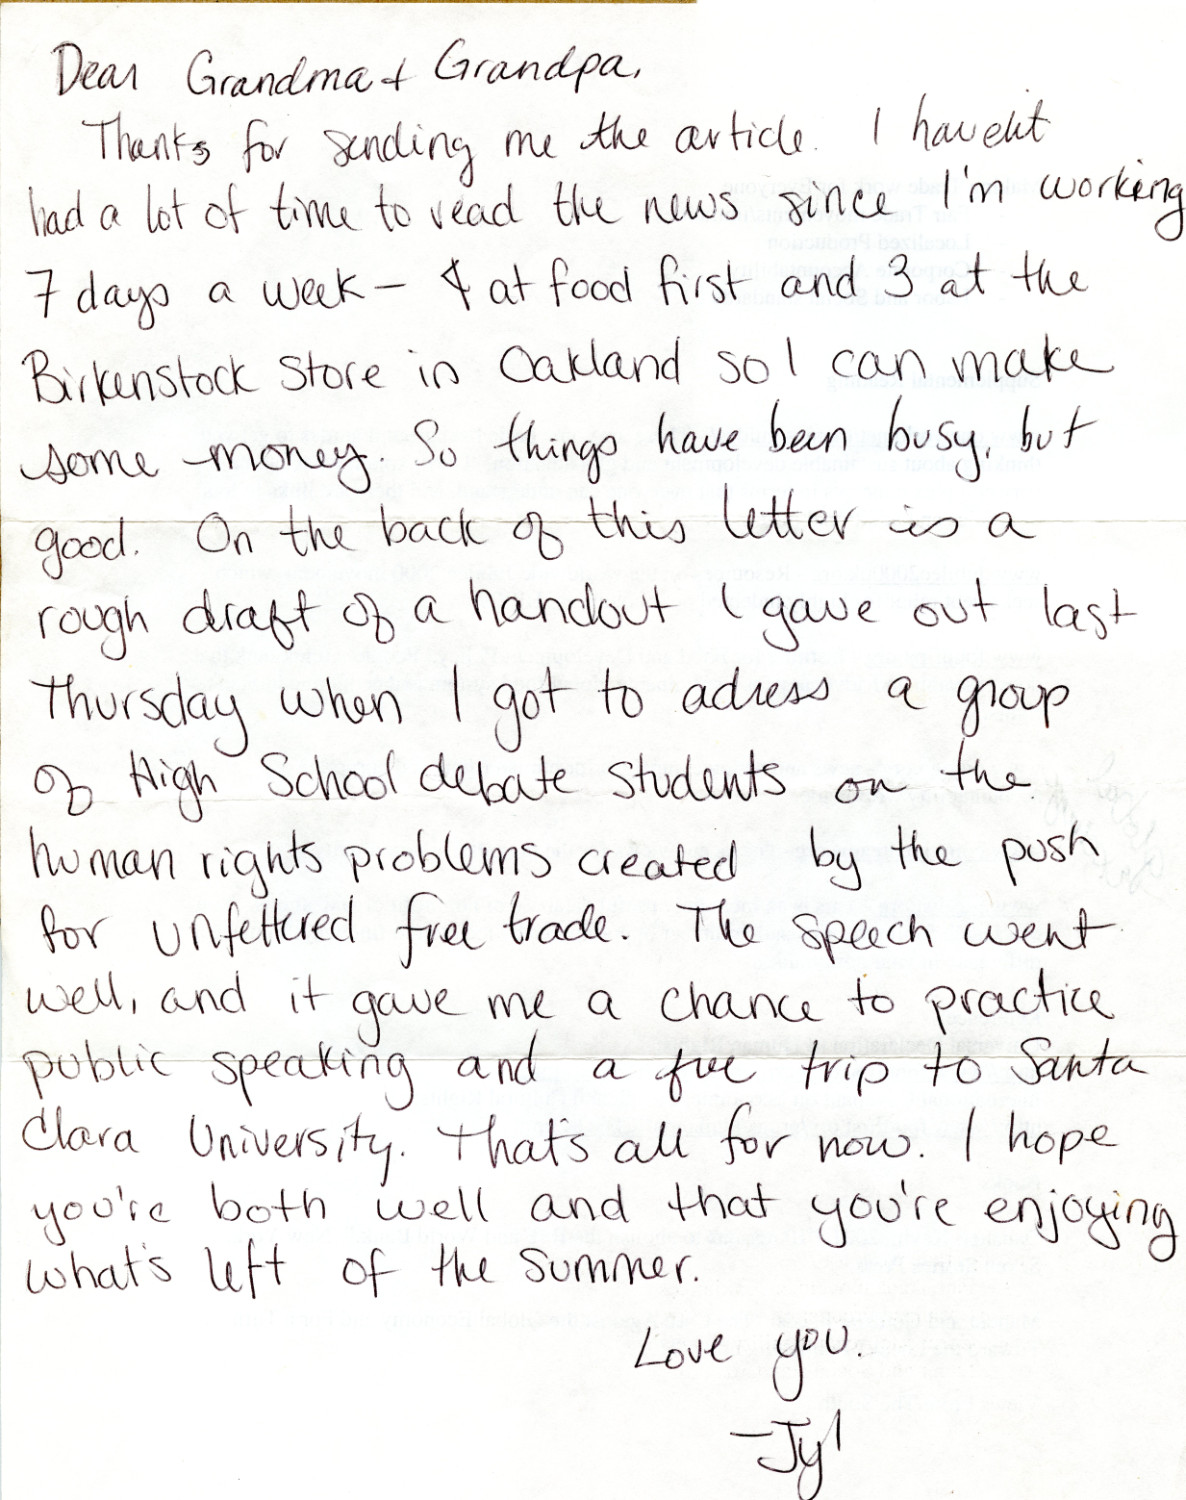 Dear Grandma + Grandpa,
Thanks for sending me the article. I haven't
had a lot of time to read the news since I'm working
7 days a week - 4 at food first and 3 at the
Birkenstock Store in Oakland so I can make
some money. So things have been busy, but
good. On the back of this letter is a
rough draft of a handout I gave out last
Thursday when I got to adress a group
of High School debate students on the
human rights problems created by the push
for unfettered free trade. The speech went
well, and it gave me a chance to practice
public speaking and a free trip to Santa
Clara University. That's all for now. I hope
you're both well and that you're enjoying
what's left of the summer.
Love you.
-Jyl